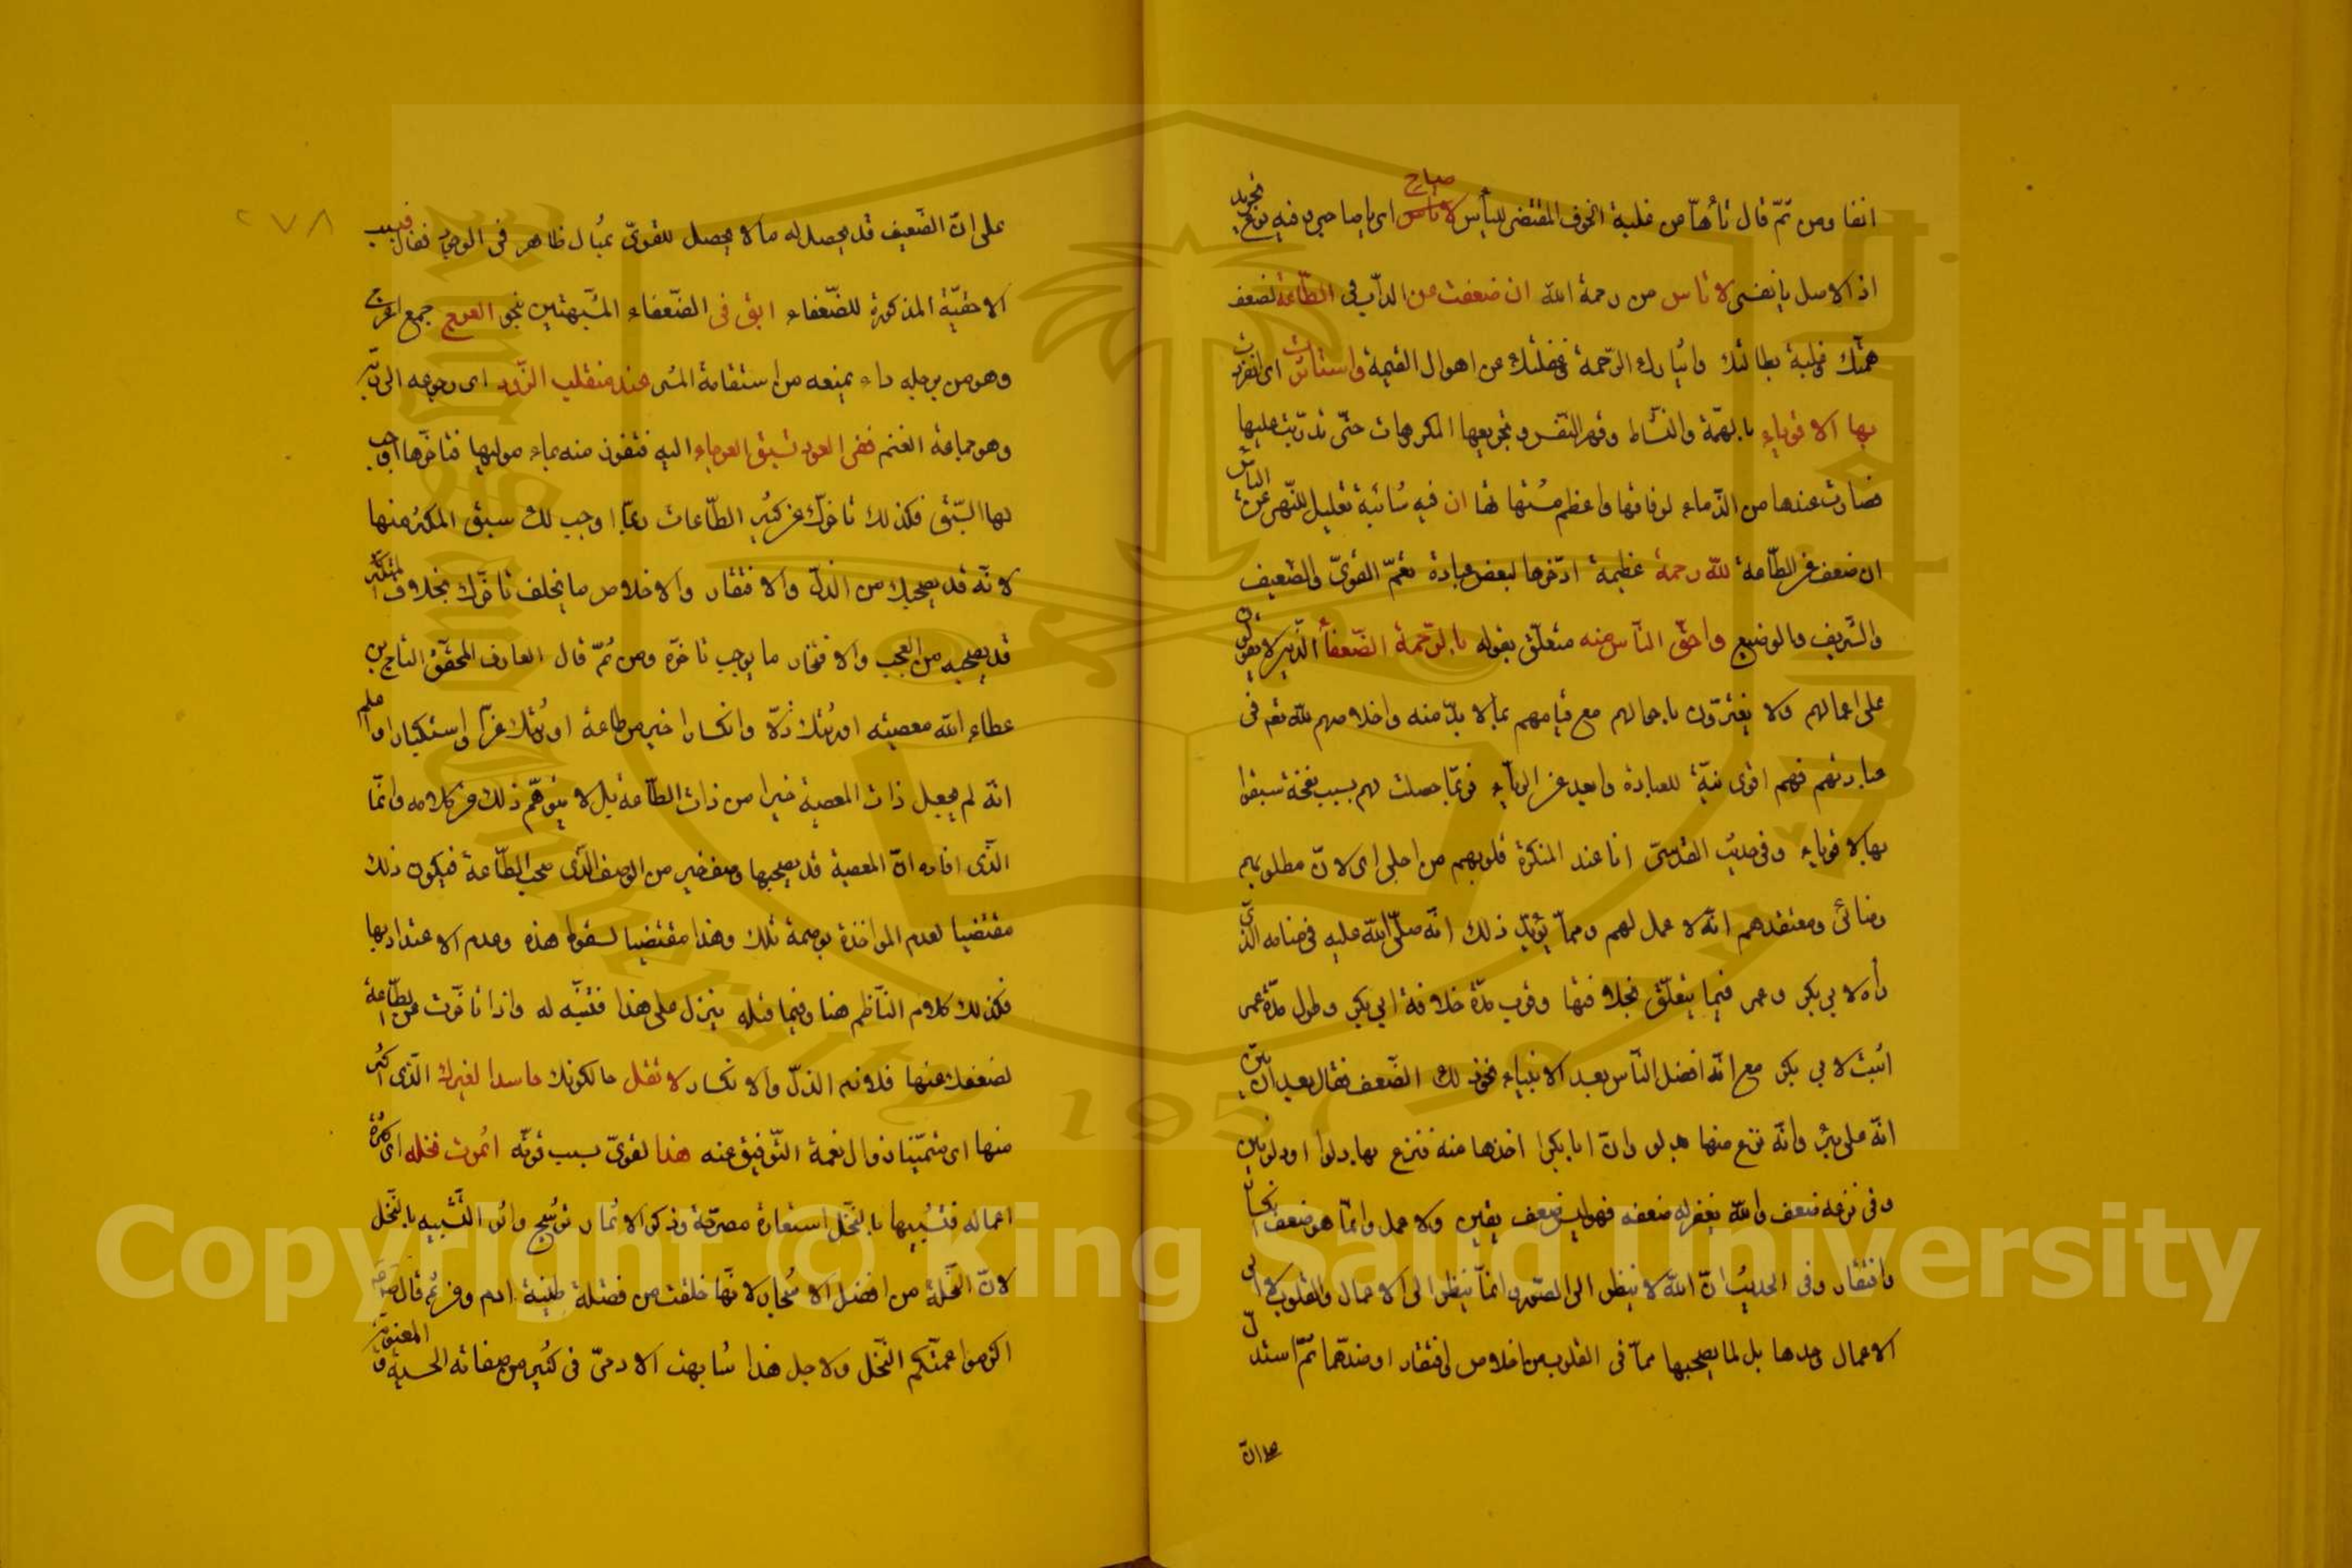 صاح
انفا ومن ثمّ قال تأهّا من غلبة الخوف المقتضى لليأس لا تاس اى يا صاحبي وفيه تجريد
اذ الاصل يا نفسى لا تاس من رحمة الله ان ضعفت عن الدأب في الطاعة لضعف
همّتك وغلبة بطالتك وانما دك الرحمة فخلّتك من اهوال القيمة واستأثرت اى انفردت
بها الاقوياء بالهمّة والنشاط وقهر النفس وتجريعها المكروهات حتّى تدرّبت عليها
فصارت عندها من الذماء لوفاقها واعظم مشتهاتها ان فيه شائبة تعليل للنّهى عن اليأس
ان ضعف عن الطّاعة لله رحمة عظيمة ادّخرها لبعض عباده تعمّ القوىّ والضّعيف
والشّريف والوضيع واحقّ النّاس منه متعلّق بقوله بالرّحمة الضّعفاء الّذين لا يعوّلون
على اعمالهم ولا يغترّون باعمالهم مع قيامهم بما لا بدّ منه واخلاصهم لله تعم فى
عبادتهم فهم اقوى نيّة للعبادة وابعد عن الرياء فربّما حصلت لهم بسبب نفحة سبقوا
بها الاقوياء وفى حديث القدسىّ انا عند المنكسرة قلوبهم من اجلى اى لانّ مطلوبهم
رضائى ومعتقدهم انّه لا عمل لهم وممّا يؤيّد ذلك انّه صلّى الله عليه فى منامه الّذى
رأه لابي بكر وعمر فيما يتعلّق بخلافتها وقرب مدّة خلافة ابي بكر وطول مدّة عمر
اثبت لابي بكر مع انّه افضل النّاس بعد الانبياء نحو ذلك الضّعف فقال بعد ان بيّن
انّه على بئر وانّه نزع منها بدلو وانّ ابا بكر اخذها منه فنزع بها دلوا او دلوين
وفى نزعه ضعف والله يغفر له ضعفه فهو ليس ضعف يقين ولا عمل وانّما هو ضعف انكسار
وافتقار وفى الحديث انّ الله لا ينظر الى الصّور وانّما ينظر الى الاعمال والقلوب لا الى
الاعمال وحدها بل لما يصحبها ممّا فى القلوب من اخلاص او افتقار او ضدّهما ثمّ استدلّ
على انّ
٢٧٨
على انّ الضّعيف قد يحصل له ما لا يحصل للقوىّ بمثال ظاهر فى الوجود فقال فبسبب
الاحقيّة المذكورة للضّعفاء ابق فى الضّعفاء المشبّهين بنحو العرج جمع اعرج
وهو من برجله داء يمنعه من استقامة المشى عند منقلب الذّود اى رجوعه الى ربّه
وهو جماعة الغنم ففى العود تسبق العرجاء اليه فتفوز منه بماء موليها فتأخّرها اوجب
لها السّبق فكذلك تأخّرك عن كثير الطّاعات ربّما اوجب لك سبق المكثر منها
لانّه قد يصحبك من الذلّ والافتقار والاخلاص ما يخلف تأخّرك بخلاف المكثر
قد يصحبه من العجب والافتخار ما يوجب تأخّره ومن ثمّ قال العارف المحقّق التاج بن
عطاء الله معصيته اورثتك ذلّا وانكسارا خير من طاعة اورثتك عزّا واستكبارا واعلم
انّه لم يجعل ذات المعصية خيرا من ذات الطّاعة بل لا يتوهّم ذلك من كلامه وانّما
الّذى افاده انّ المعصية قد يصحبها وصف خير من الوصف الّذى صحب الطّاعة فيكون ذلك
مقتضيا لعدم المواخذة بوصمة تلك وهذا مقتضيا لسقوط هذه وعدم الاعتداد بها
فكذلك كلام النّاظم هنا وفيما قبله ينزل على هذا فتنبّه له واذا تأخّرت عن الطّاعة
لضعفك عنها فلازم الذلّ والانكسار لا تقل حال كونك حاسدا لغيرك الّذى اكثر
منها اى متمنّيا زوال نعمة التّوفيق عنه هذا لقوىّ بسبب قوّته اثمرت نخله اى كثرة
اعماله فتشبيهها بالنّخل استعارة مصرّحة وذكر الاثمار ترشيح واثر التّشبيه بالنّخل
لانّ النّخلة من افضل الاشجار لانّها خلقت من فضلة طينة ادم ومن ثمّ قال صلعم
اكرموا عمّتكم النّخل ولاجل هذا شابهت الادمىّ فى كثير من صفاته الحسيّة والمعنويّة